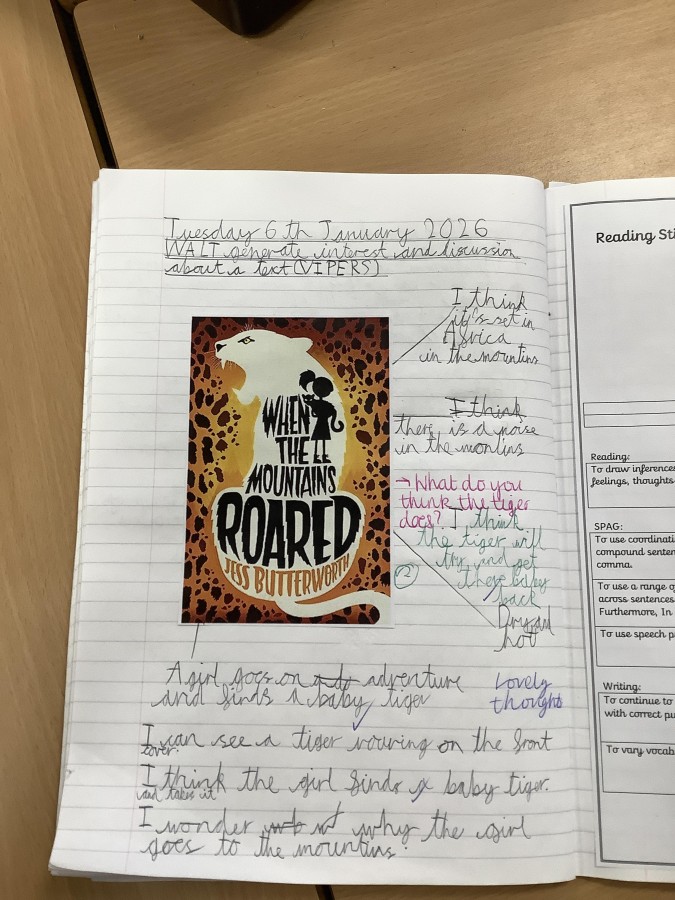 Tuesday 6th January 2026
WALT generate interest and discussion
about a text (VIPERS)
I think
it's set in
Africa
in the mountins
I think
there is a noise
in the montins
→ What do you
think the tiger
does? I think
the tiger will
try and get
there baby
back
2
Dry and
hot
WHEN
THE
MOUNTAINS
ROARED
JESS BUTTERWORTH
A girl goes on adventure
and finds a baby tiger
Lovely
thoughts
I can see a tiger rouring on the front
cover.
I think the girl finds a baby tiger.
and takes it
I wonder why the girl
goes to the mountins.
Reading Sti
Reading:
To draw inferences
feelings, thoughts
SPAG:
To use coordinati
compound senten
comma.
To use a range o
across sentences
Furthermore, In
To use speech p
Writing:
To continue to
with correct pu
To vary vocab